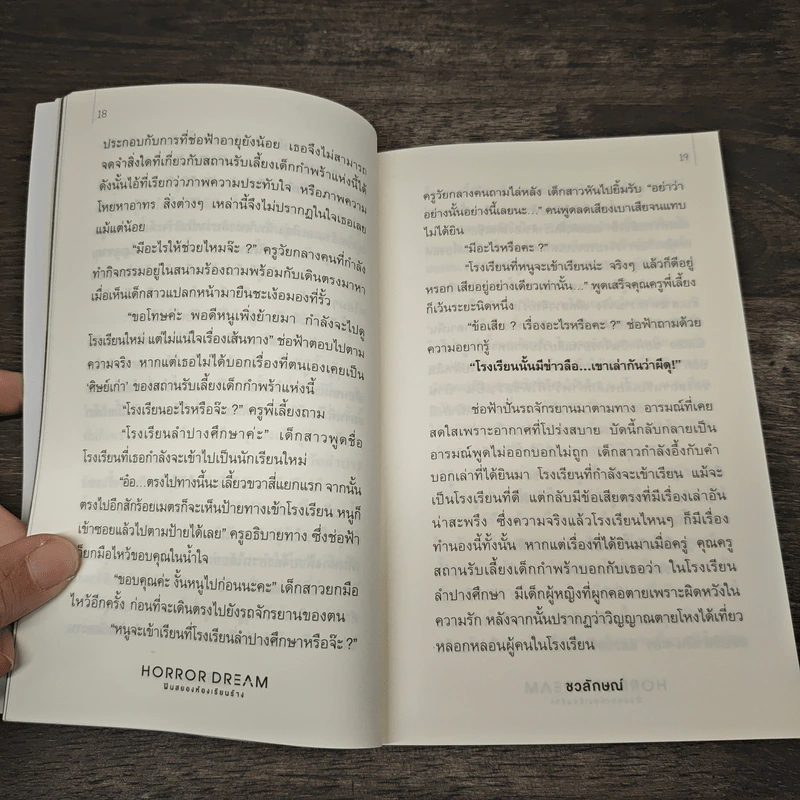 18
ประกอบกับการที่ช่อฟ้าอายุยังน้อย เธอจึงไม่สามารถ
จดจำสิ่งใดที่เกี่ยวกับสถานรับเลี้ยงเด็กกำพร้าแห่งนี้ได้
ดังนั้นไอ้ที่เรียกว่าภาพความประทับใจ หรือภาพความ
โหยหาอาทร สิ่งต่างๆ เหล่านี้จึงไม่ปรากฏในใจเธอเลย
แม้แต่น้อย
“มีอะไรให้ช่วยไหมจ๊ะ ?” ครูวัยกลางคนที่กำลัง
ทำกิจกรรมอยู่ในสนามร้องถามพร้อมกับเดินตรงมาหา
เมื่อเห็นเด็กสาวแปลกหน้ามายืนชะเง้อมองที่รั้ว
“ขอโทษค่ะ พอดีหนูเพิ่งย้ายมา กำลังจะไปดู
โรงเรียนใหม่ แต่ไม่แน่ใจเรื่องเส้นทาง” ช่อฟ้าตอบไปตาม
ความจริง หากแต่เธอไม่ได้บอกเรื่องที่ตนเองเคยเป็น
‘ศิษย์เก่า’ ของสถานรับเลี้ยงเด็กกำพร้าแห่งนี้
“โรงเรียนอะไรหรือจ๊ะ ?” ครูพี่เลี้ยงถาม
“โรงเรียนลำปางศึกษาค่ะ” เด็กสาวพูดชื่อ
โรงเรียนที่เธอกำลังจะเข้าไปเป็นนักเรียนใหม่
“อ๋อ...ตรงไปทางนี้นะ เลี้ยวขวาสี่แยกแรก จากนั้น
ตรงไปอีกสักร้อยเมตรก็จะเห็นป้ายทางเข้าโรงเรียน หนูก็
เข้าซอยแล้วไปตามป้ายได้เลย” ครูอธิบายทาง ซึ่งช่อฟ้า
ก็ยกมือไหว้ขอบคุณในน้ำใจ
“ขอบคุณค่ะ งั้นหนูไปก่อนนะคะ” เด็กสาวยกมือ
ไหว้อีกครั้ง ก่อนที่จะเดินตรงไปยังรถจักรยานของตน
“หนูจะเข้าเรียนที่โรงเรียนลำปางศึกษาหรือจ๊ะ ?”
HORROR DREAM
ฝันสยองห้องเรียนร้าง
19
ครูวัยกลางคนถามไล่หลัง เด็กสาวหันไปยิ้มรับ “อย่าว่า
อย่างนั้นอย่างนี้เลยนะ...” คนพูดลดเสียงเบาเสียจนแทบ
ไม่ได้ยิน
“มีอะไรหรือคะ ?”
“โรงเรียนที่หนูจะเข้าเรียนน่ะ จริงๆ แล้วก็ดีอยู่
หรอก เสียอยู่อย่างเดียวเท่านั้น...” พูดเสร็จคุณครูพี่เลี้ยง
ก็เว้นระยะนิดหนึ่ง
“ข้อเสีย ? เรื่องอะไรหรือคะ ?” ช่อฟ้าถามด้วย
ความอยากรู้
“โรงเรียนนั้นมีข่าวลือ...เขาเล่ากันว่าผีดุ!”
ช่อฟ้าปั่นรถจักรยานมาตามทาง อารมณ์ที่เคย
สดใสเพราะอากาศที่โปร่งสบาย บัดนี้กลับกลายเป็น
อารมณ์พูดไม่ออกบอกไม่ถูก เด็กสาวกำลังอึ้งกับคำ
บอกเล่าที่ได้ยินมา โรงเรียนที่กำลังจะเข้าเรียน แม้จะ
เป็นโรงเรียนที่ดี แต่กลับมีข้อเสียตรงที่มีเรื่องเล่าอัน
น่าสะพรึง ซึ่งความจริงแล้วโรงเรียนไหนๆ ก็มีเรื่อง
ทำนองนี้ทั้งนั้น หากแต่เรื่องที่ได้ยินมาเมื่อครู่ คุณครู
สถานรับเลี้ยงเด็กกำพร้าบอกกับเธอว่า ในโรงเรียน
ลำปางศึกษา มีเด็กผู้หญิงที่ผูกคอตายเพราะผิดหวังใน
ความรัก หลังจากนั้นปรากฏว่าวิญญาณตายโหงได้เที่ยว
หลอกหลอนผู้คนในโรงเรียน
ชวลักษณ์